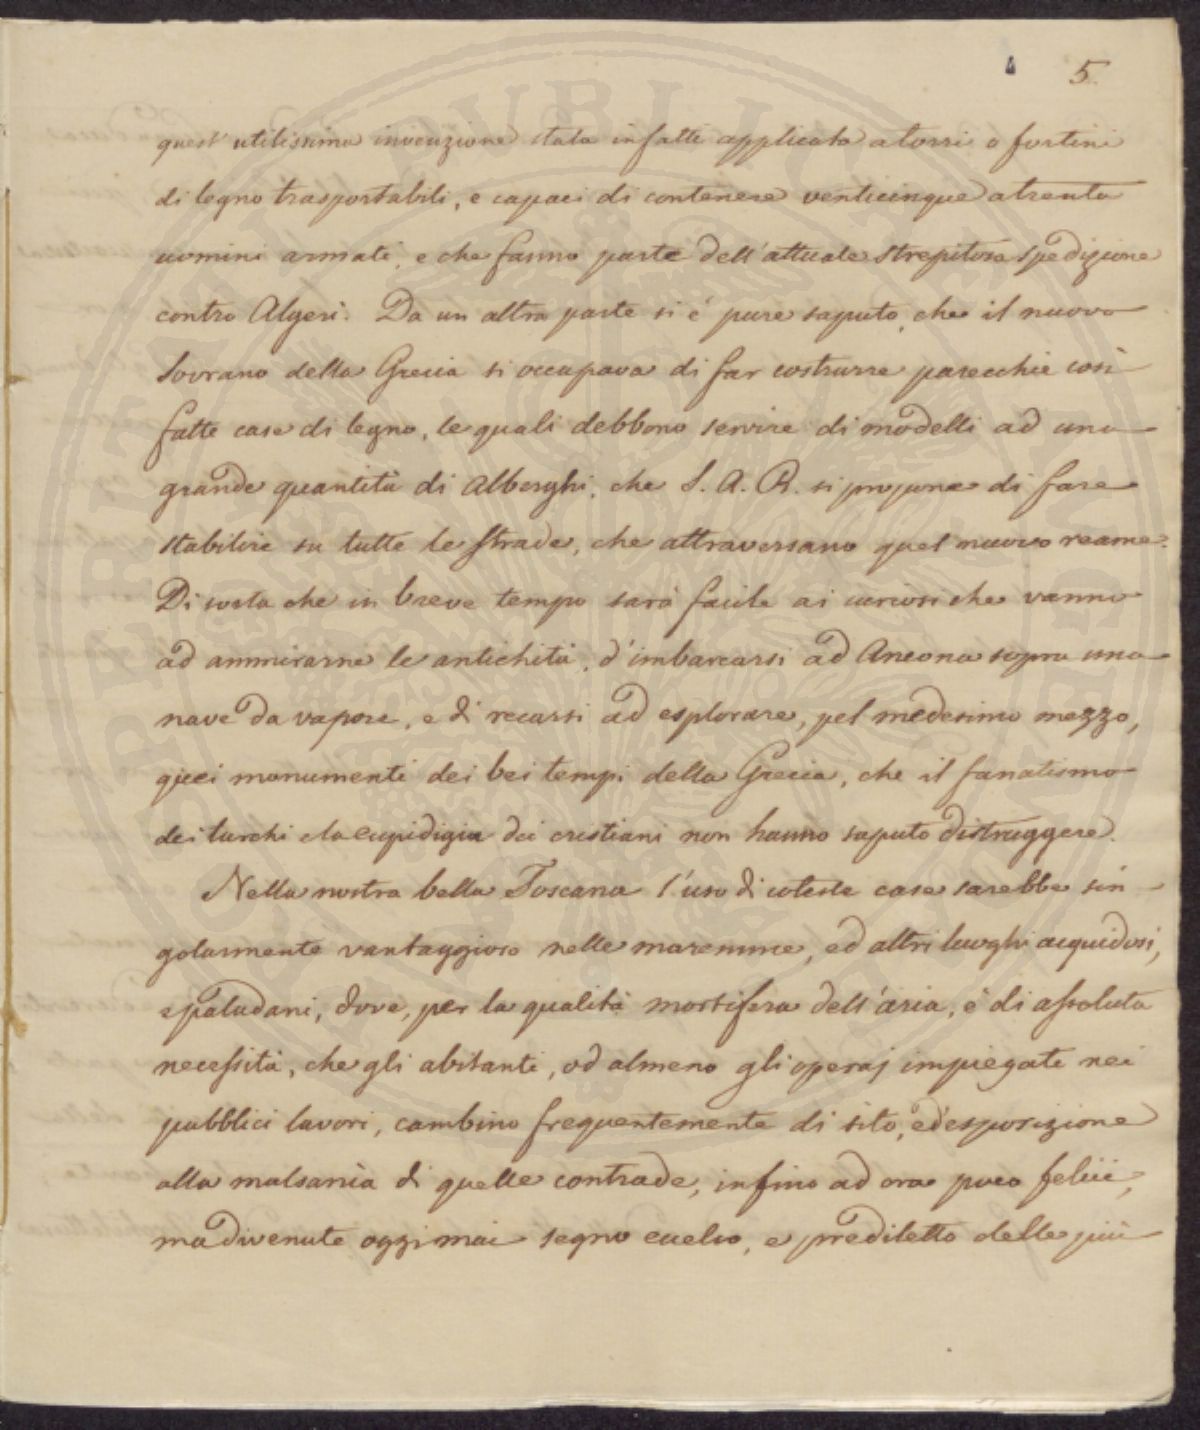 5.
quest' utilissima invenzione stata infatti applicata a torri o fortini
di legno trasportabili, e capaci di contenere venticinque a trenta
uomini armati, e che fanno parte dell'attuale strepitosa spedizione
contro Algeri. Da un altra parte si è pure saputo, che il nuovo
Sovrano della Grecia si occupava di far costrurre parecchie così
fatte case di legno, le quali debbono servire di modelli ad una
grande quantità di Alberghi, che S. A. R. si propone di fare
stabilire su tutte le strade, che attraversano quel nuovo reame.
Di sorta che in breve tempo sarà facile ai curiosi che vanno
ad ammirarne le antichità, d'imbarcarsi ad Ancona sopra una
nave da vapore, e di recarsi ad esplorare, pel medesimo mezzo,
quei monumenti dei bei tempi della Grecia, che il fanatismo
dei turchi e la cupidigia dei cristiani non hanno saputo distruggere.
Nella nostra bella Toscana l'uso di coteste case sarebbe sin-
golarmente vantaggioso nelle maremme, ed altri luoghi acquidosi,
e paludani, dove, per la qualità mortifera dell'aria, è di assoluta
necessità, che gli abitanti, od almeno gli operaj impiegati nei
pubblici lavori, cambino frequentemente di sito, ed esposizione
alla malsanìa di quelle contrade, infino ad ora poco felici,
ma divenute oggimai segno eccelso, e prediletto delle più